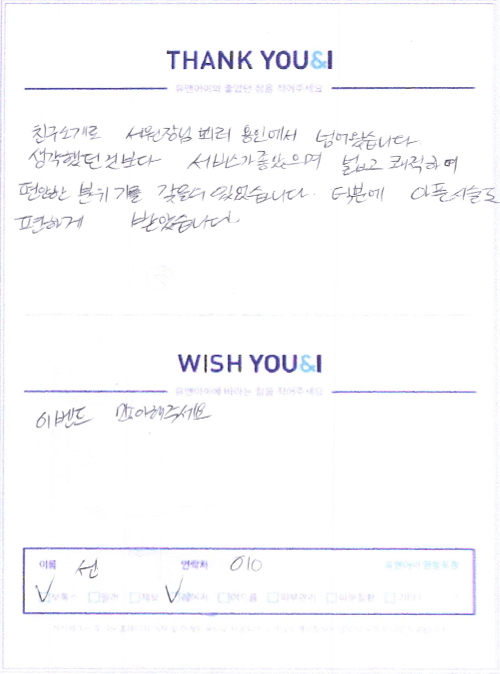 THANK YOU&I
유앤아이의 좋았던 점을 적어주세요
친구소개로 서원장님 뵈러 용인에서 넘어왔습니다
생각했던것보다 서비스가좋았으며 넓고 쾌적하여
편안한 분위기를 갖을수있었습니다. 덕분에 아픈시술도
편하게 받았습니다.
WISH YOU&I
유앤아이에 바라는 점을 적어주세요
이벤트 많이해주세요
이름 선 연락처 010
보톡스 필러 제모 레이저 여드름 피부관리 기타